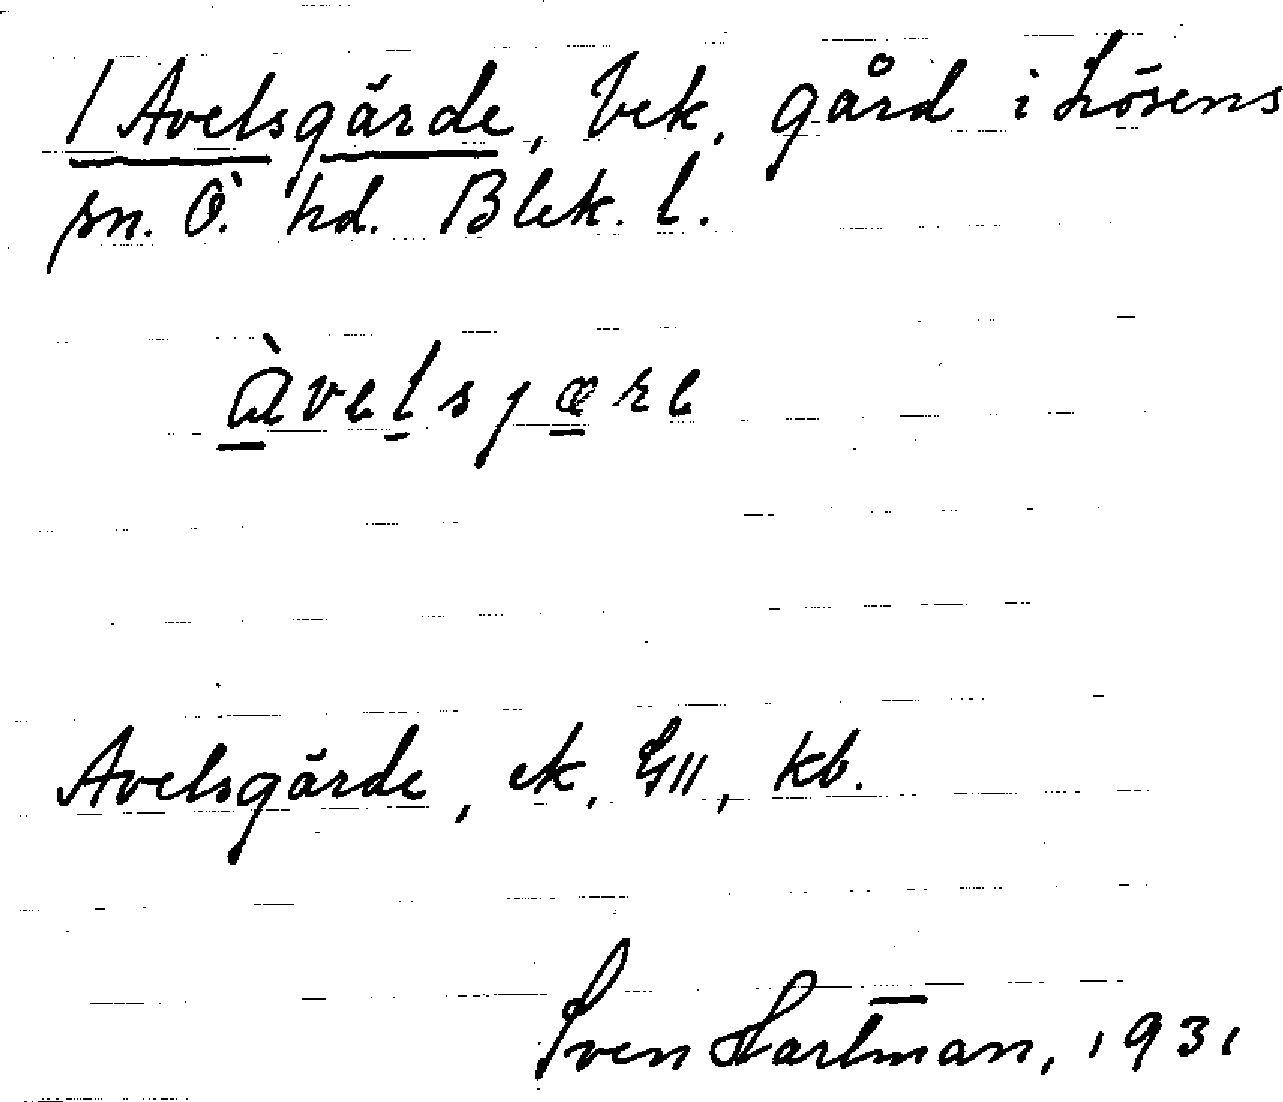 / Avelsgärde, bek. gård i Lösens
sn. Ö. hd. Blek. l.
àvelsjære
Avelsgärde, ek. GII, kb.
Sven Hartman, 1931